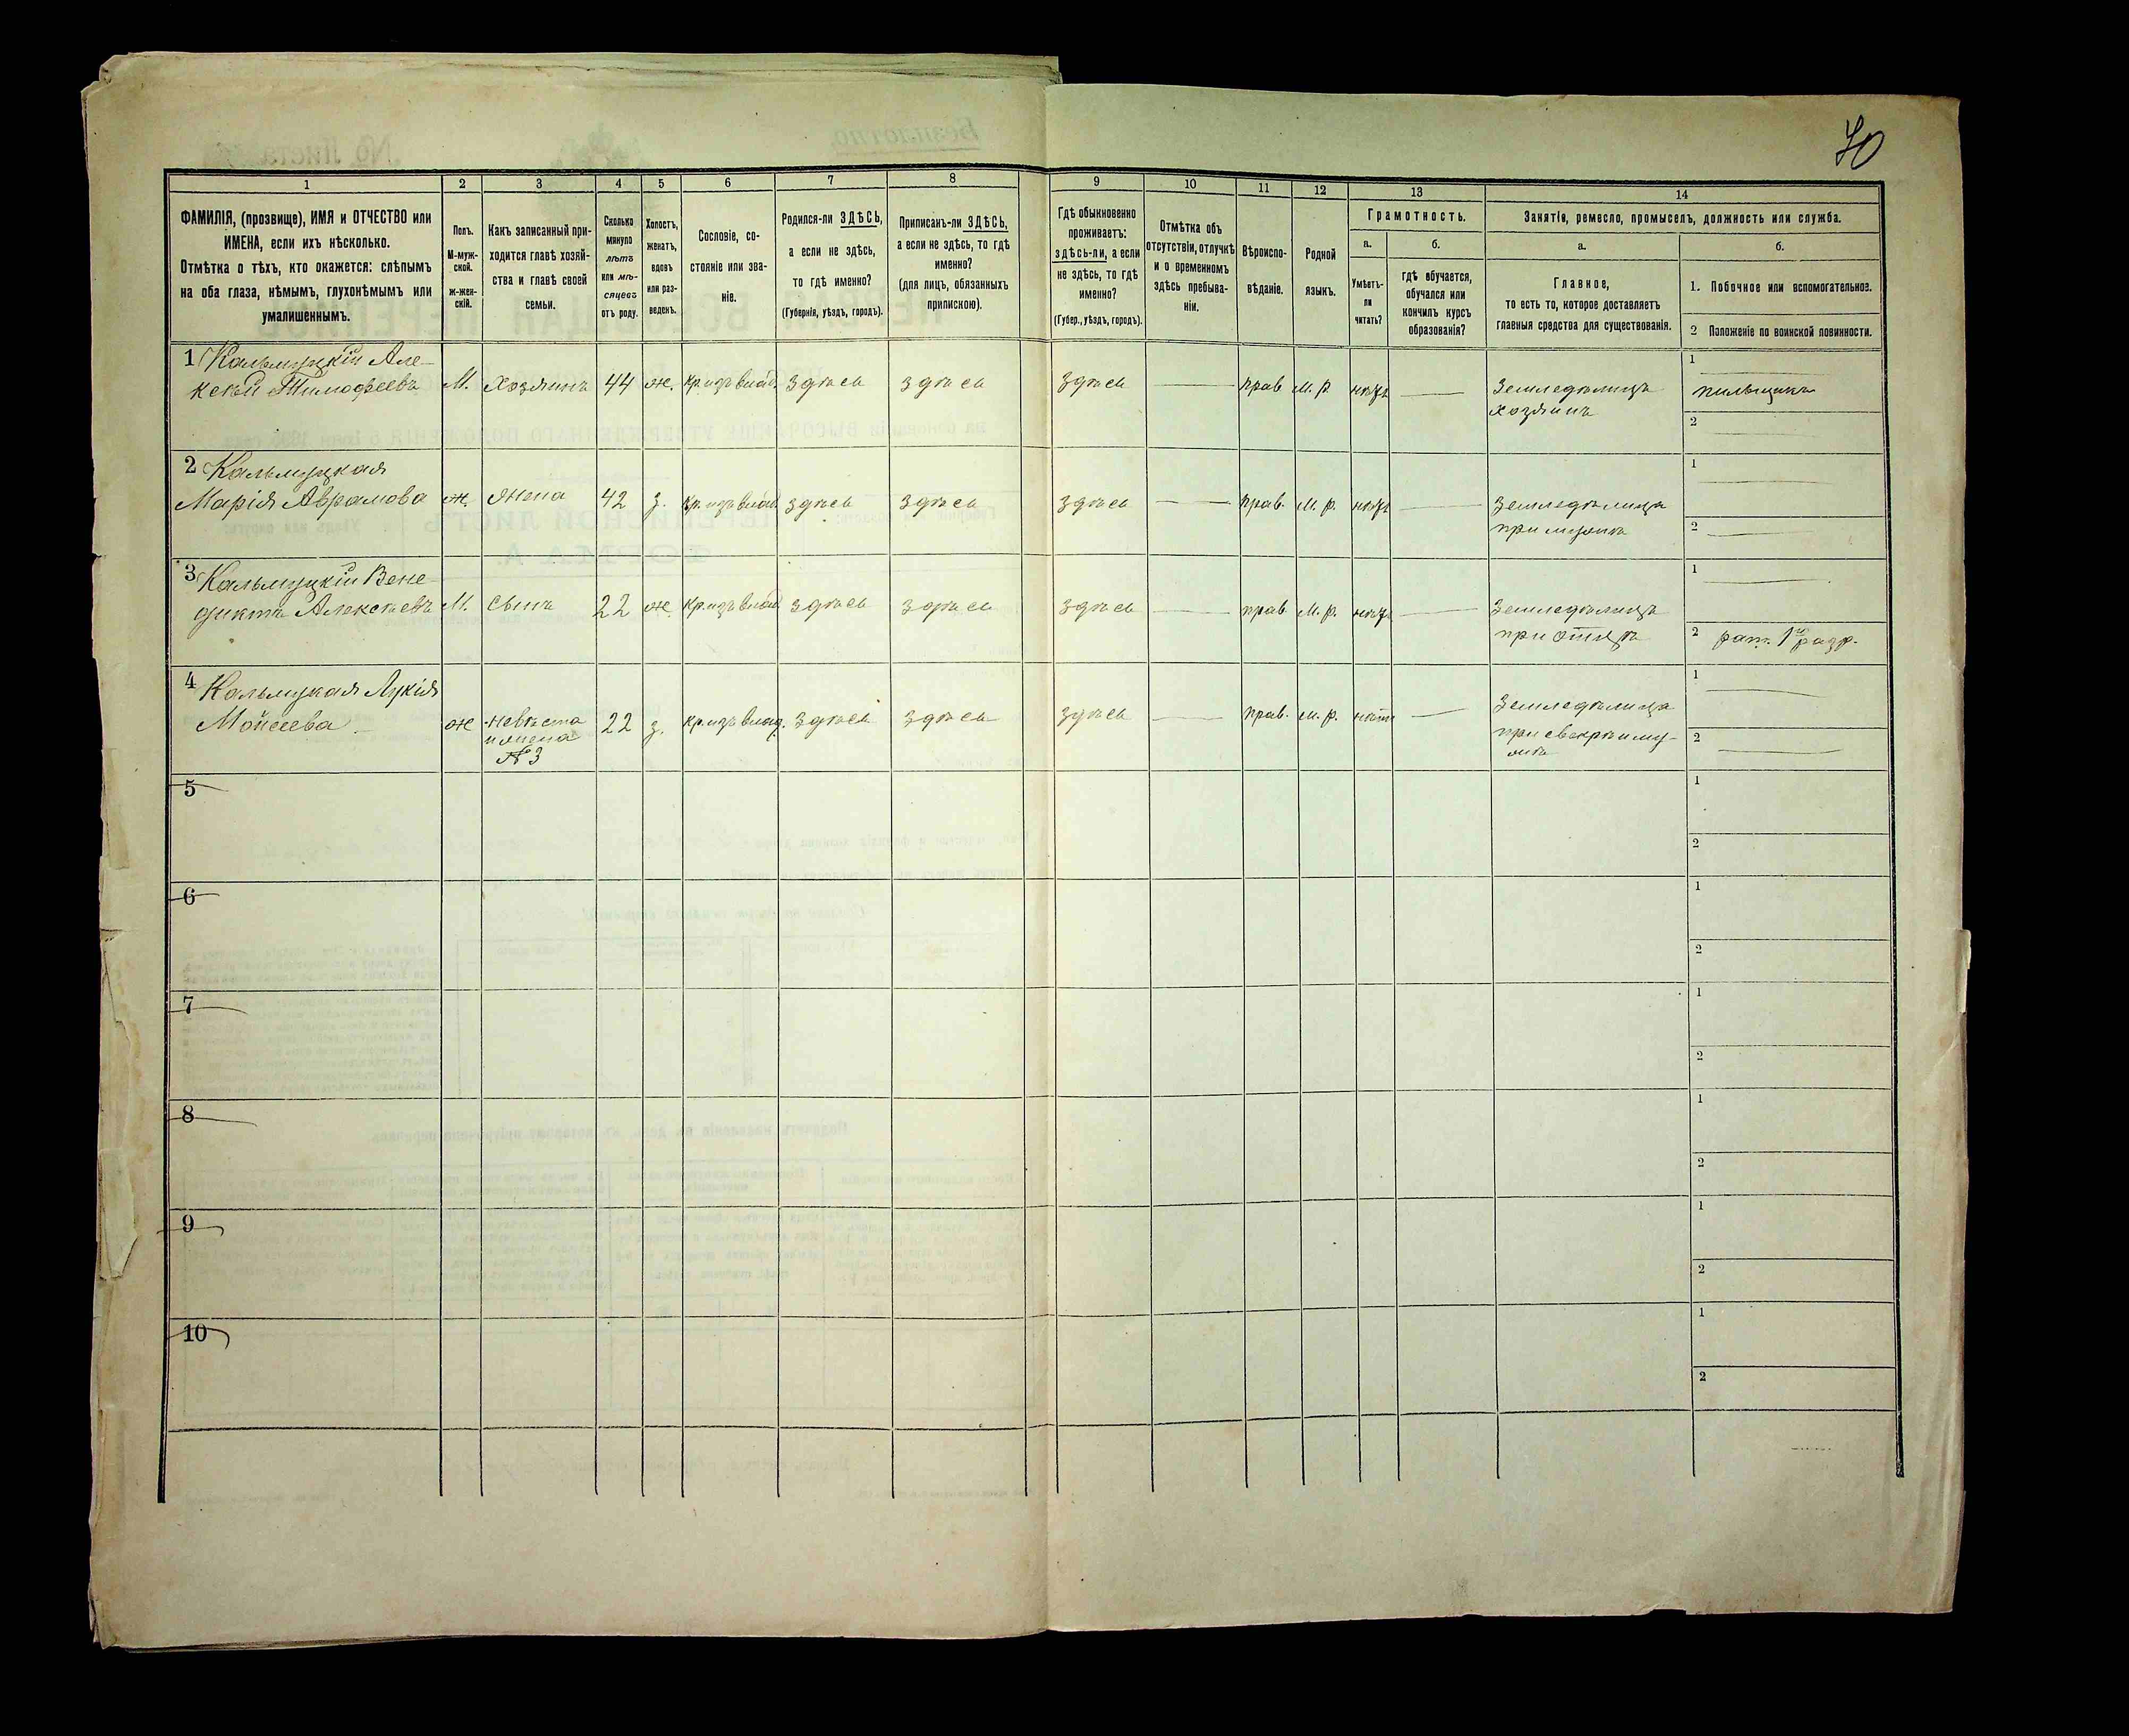 70
1 2 3 4 5 6 7 8 9 10 11 12 13 14
ФАМИЛІЯ, (прозвище), ИМЯ и ОТЧЕСТВО или
ИМЕНА, если ихъ нѣсколько.
Отмѣтка о тѣхъ, кто окажется: слѣпымъ
на оба глаза, нѣмымъ, глухонѣмымъ или
умалишеннымъ.
Полъ.
М-муж-
ской.
ж-жен-
скій.
Какъ записанный при-
ходится главѣ хозяй-
ства и главѣ своей
семьи.
Сколько
минуло
лѣтъ
или мѣ-
сяцевъ
отъ роду.
Холостъ,
женатъ,
вдовъ
или раз-
веденъ.
Сословіе, со-
стояніе или зва-
ніе.
Родился-ли ЗДѢСЬ,
а если не здѣсь,
то гдѣ именно?
(Губернія, уѣздъ, городъ).
Приписанъ-ли ЗДѢСЬ,
а если не здѣсь, то гдѣ
именно?
(для лицъ, обязанныхъ
припискою).
Гдѣ обыкновенно
проживаетъ:
здѣсь-ли, а если
не здѣсь, то гдѣ
именно?
(Губер., уѣздъ, городъ).
Отмѣтка объ
отсутствіи, отлучкѣ
и о временномъ
здѣсь пребыва-
ніи.
Вѣроиспо-
вѣданіе.
Родной
языкъ.
Грамотность.
а.
Умѣетъ-
ли
читать?
б.
гдѣ обучается,
обучался или
кончилъ курсъ
образованія?
Занятіе, ремесло, промыселъ, должность или служба.
а.
Главное,
то есть то, которое доставляетъ
главныя средства для существованія.
б.
1. Побочное или вспомогательное.
2 Положеніе по воинской повинности.
1 Кальмуцкій Але-
ксѣй Тимофеевъ М. хозяинъ 44 ж. кр. изъ влад. здѣсь здѣсь здѣсь — прав. м. р. нѣтъ — Земледѣлецъ
хозяинъ
1 пильщикъ
2
2 Кальмуцкая
Марія Аврамова ж. жена 42 з. кр. изъ влад. здѣсь здѣсь здѣсь — прав. м. р. нѣтъ — Земледѣлица
при мужѣ
1
2
3 Кальмуцкій Вене-
диктъ Алексѣевъ М. сынъ 22 ж. кр. изъ влад. здѣсь здѣсь здѣсь — прав. м. р. нѣтъ — Земледѣлецъ
при отцѣ
1
2 рат. 1го разр.
4 Кальмуцкая Лукія
Мойсеева ж невѣста
и жена
№ 3
22 з. кр. изъ влад. здѣсь здѣсь здѣсь — прав. м. р. нѣтъ — Земледѣлица
при свекрѣ и му-
жѣ
1
2
5
1
2
6
1
2
7
1
2
8
1
2
9
1
2
10
1
2